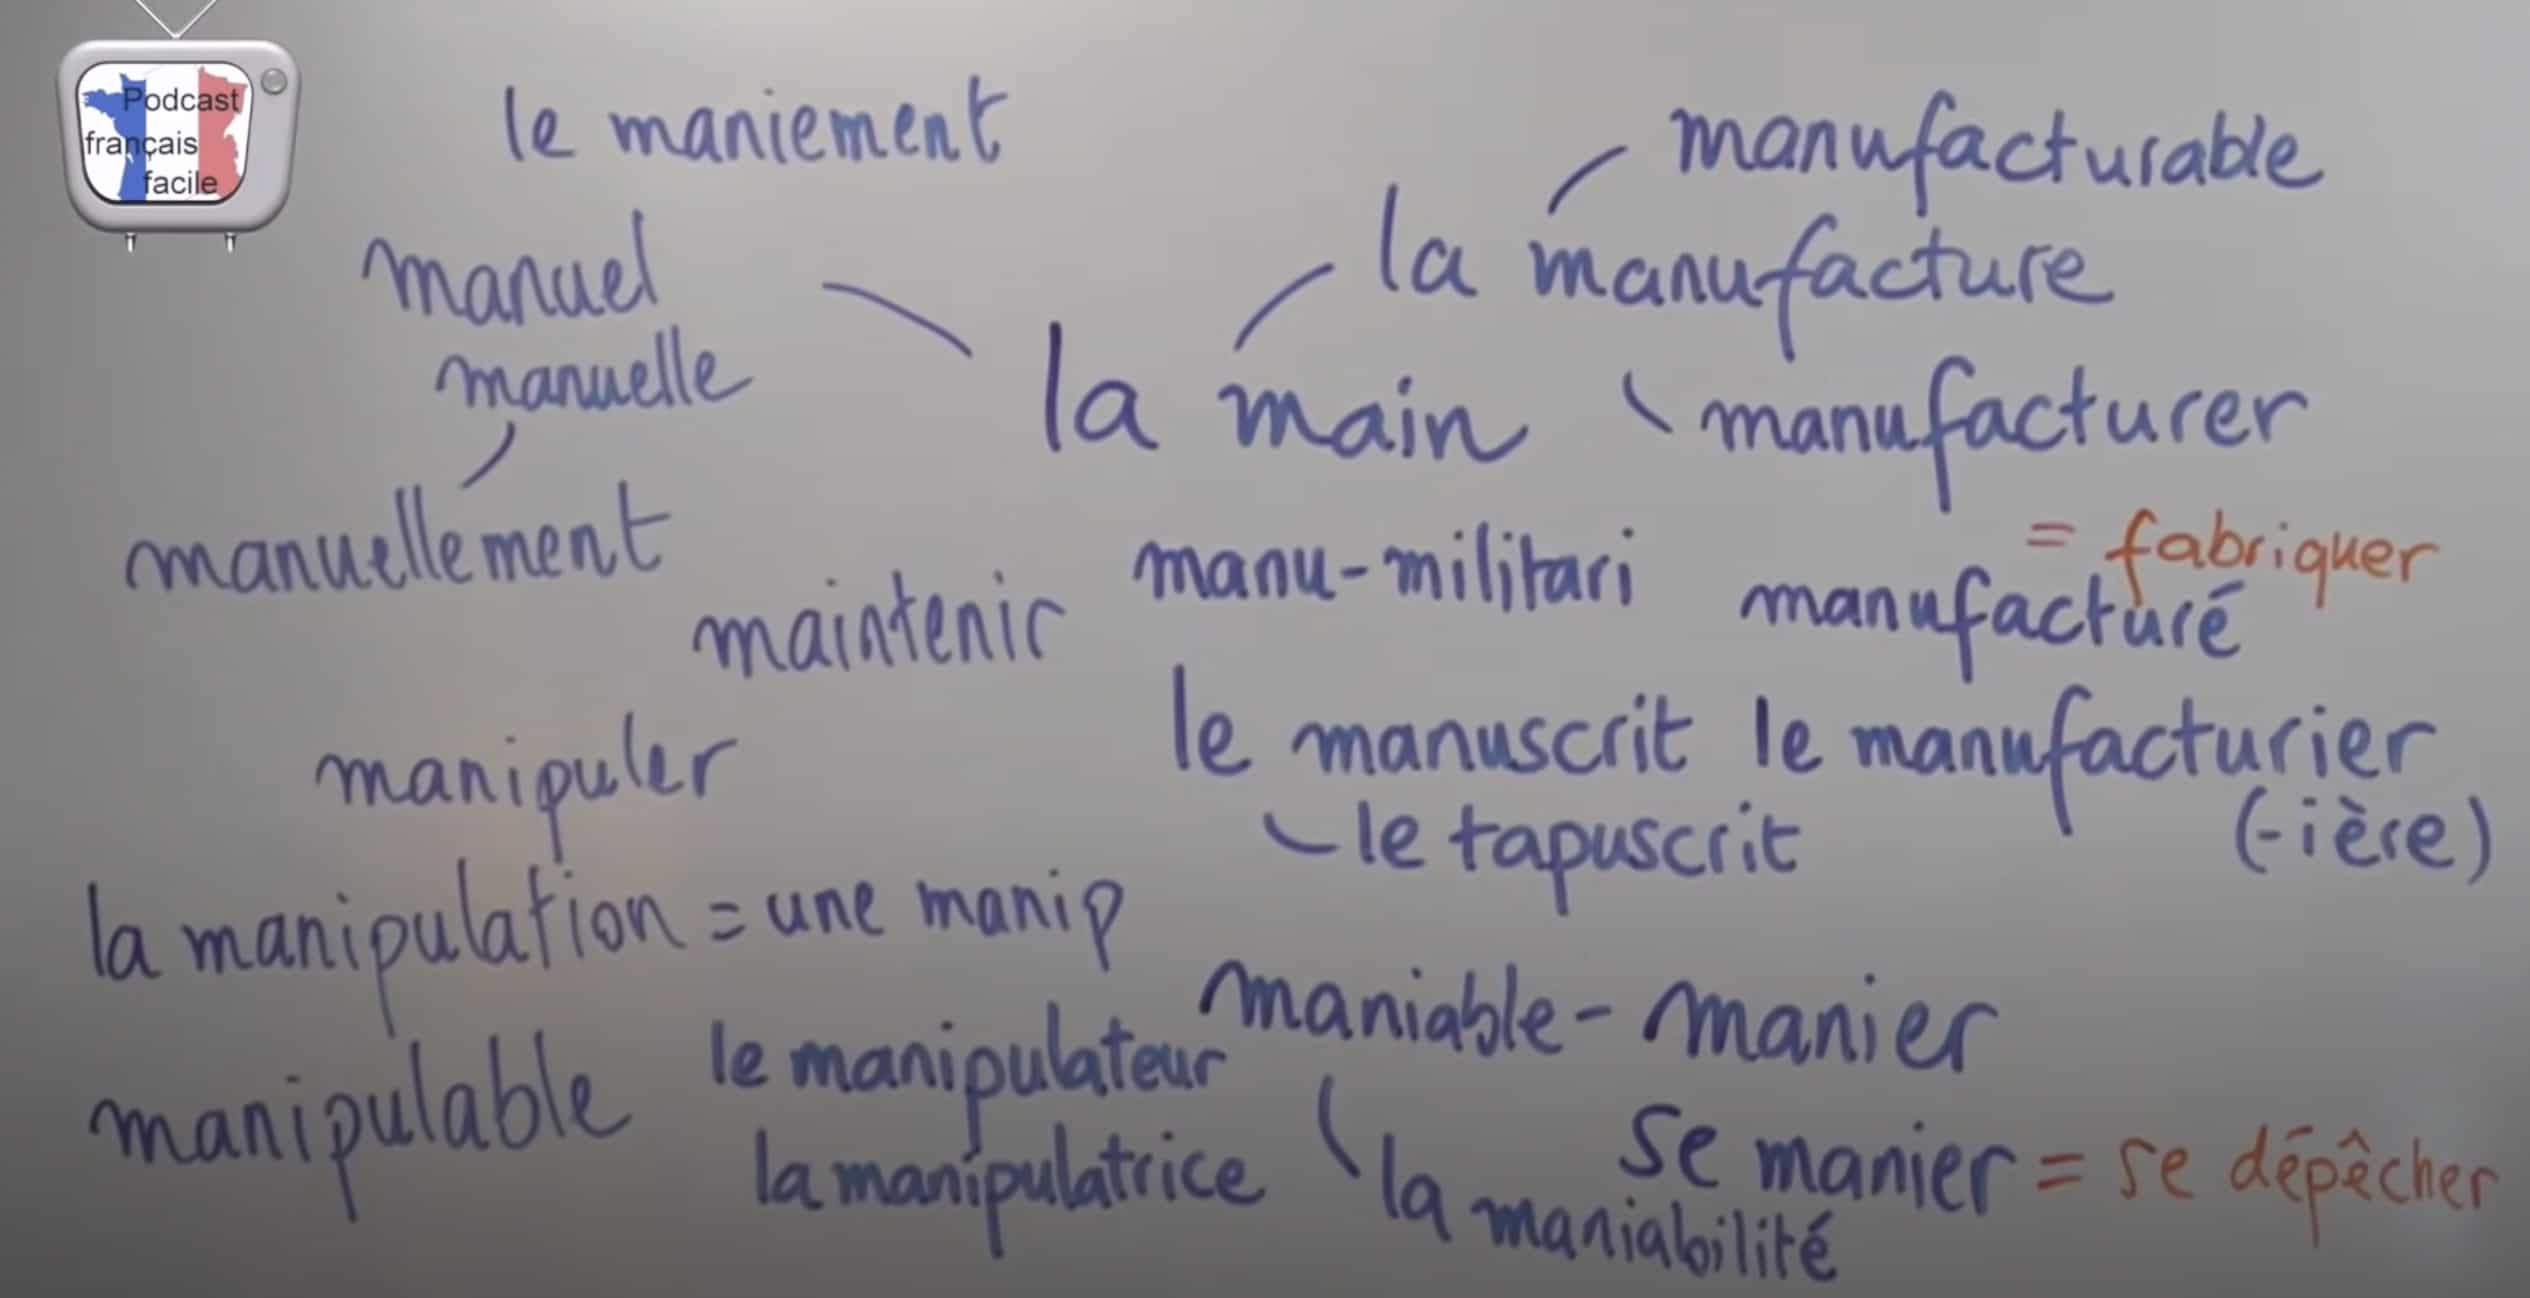 Podcast
français
facile
le maniement
manuel
manuelle
manuellement
la main
la manufacture
manufacturable
manufacturer
= fabriquer
manufacturé
le manufacturier
(-ière)
manu-militari
maintenir
le manuscrit
le tapuscrit
manipuler
la manipulation = une manip
manipulable
le manipulateur
la manipulatrice
maniable - manier
se manier = se dépêcher
la maniabilité